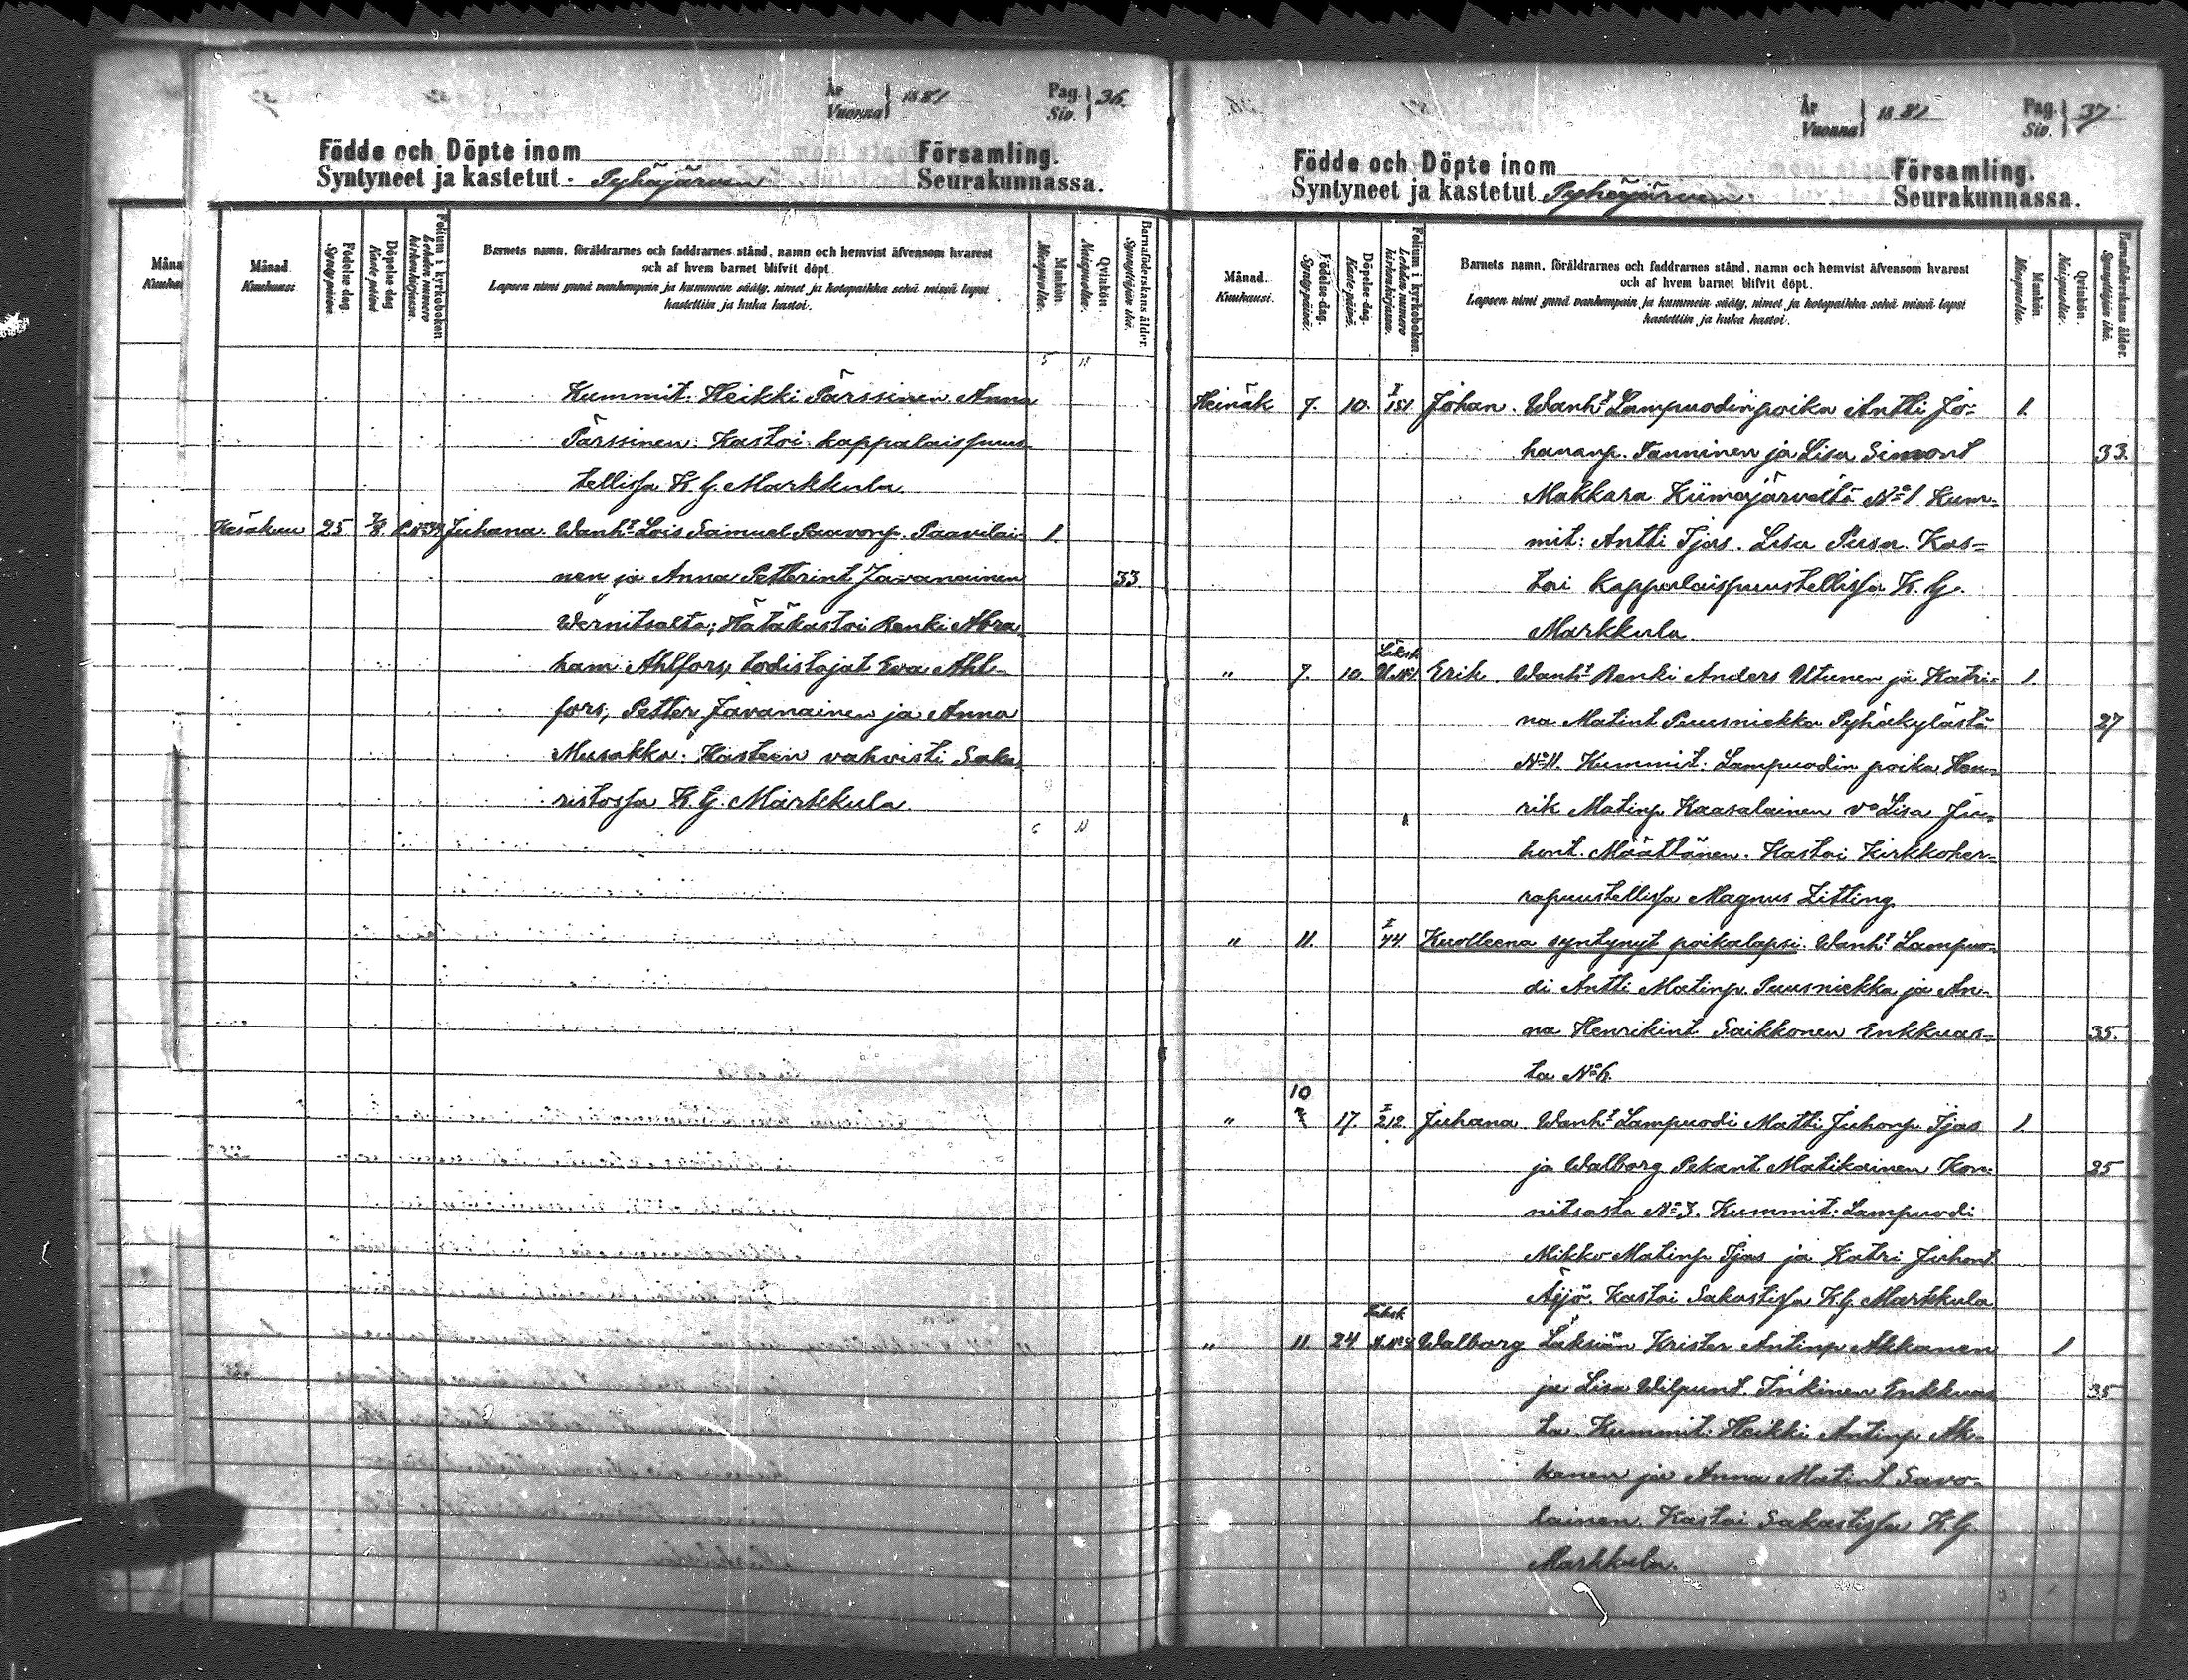 År Vuonna } 1881 Pag. Siv. } 36.
Födde och Döpte inom Församling.
Syntyneet ja kastetut Pyhäjärven Seurakunnassa.
Månad. Kuukausi.
Födelse dag. Synty-päivä.
Döpelse-dag. Kaste-päivä.
Folium i kyrkoboken. Lehden numero kirkonkirjassa.
Barnets namn, föräldrarnes och faddrarnes stånd, namn och hemvist äfvensom hvarest
och af hvem barnet blifvit döpt.
Lapsen nimi ynnä vanhempain ja kummein sääty, nimet ja kotopaikka sekä missä lapsi
kastettiin ja kuka kastoi.
Mankön. Miespuolia.
Qvinkön. Naispuolia.
Barnaföderskans ålder. Synnyttäjän ikä.
Kummit: Heikki Pärssinen Anna
Pärssinen. Kastoi kappalaispuus-
tellissa K. G. Markkula
Kesäkuu 25 Juhana. Wanht Lois Samuel Paavonp. Paavilai- 1.
nen ja Anna Petterint Javanainen 33
Wernitsalta; Hätäkastoi Renki Abra-
ham Ahlfors, todistajat Eva Ahl-
fors, Petter Javanainen ja Anna
Musakka. Kasteen vahvisti Saka-
ristossa K. G. Markkula
År Vuonna } 1881 Pag. Siv. } 37
Födde och Döpte inom Församling.
Syntyneet ja kastetut Pyhäjärven Seurakunnassa.
Månad. Kuukausi.
Födelse-dag. Synty-päivä.
Döpelse-dag. Kaste-päivä.
Folium i kyrkoboken. Lehden numero kirkonkirjassa.
Barnets namn, föräldrarnes och faddrarnes stånd, namn och hemvist äfvensom hvarest
och af hvem barnet blifvit döpt.
Lapsen nimi ynnä vanhempain ja kummein sääty, nimet ja kotopaikka sekä missä lapsi
kastettiin ja kuka kastoi.
Mankön. Miespuolia.
Qvinkön. Naispuolia.
Barnaföderskans ålder. Synnyttäjän ikä.
Heinäk 7. 10. I 151 Johan. Wanht Lampuodinpoika Antti Jo- 1.
hananp. Tanninen ja Lisa Simont 33.
Makkara Kiimajärveltä No 1 Kum-
mit: Antti Ijas. Lisa Pusa. Kas-
toi kappalaispuustellissa K. G.
Markkula
" 7. 10. Erik Wanht Renki Anders Utunen ja Katri- 1.
na Matint Puusniekka Pyhäkylästä 27
No 11. Kummit: Lampuodin poika Hen-
rik Matinp. Kaasalainen vo Lisa Ju-
hont. Määttänen. Kastoi Kirkkoher-
rapuustellissa Magnus Zitting
" 11. I 44 Kuolleena syntynyt poikalapsi. Wanht Lampuo-
di Antti Matinp. Puusniekka ja An-
na Henrikint. Saikkonen Enkkuas- 35.
ta No 6.
10
" 17. I 212. Juhana Wanht Lampuodi Matti Juhonp. Ijas 1.
ja Walborg Pekant Matikainen Kon- 25
nitsasta No 3. Kummit: Lampuodi
Mikko Matinp. Ijas ja Katri Juhont
Äijö. Kastoi Sakastissa K. G. Markkula
" 11. 24 Walborg Läksiän Krister Antinp Akkanen 1
ja Lisa Wilpunt. Inkinen Enkkuas- 35
ta. Kummit: Heikki Antinp. Ak-
kanen ja Anna Matint Savo-
lainen. Kastoi Sakastissa K. G.
Markkula.